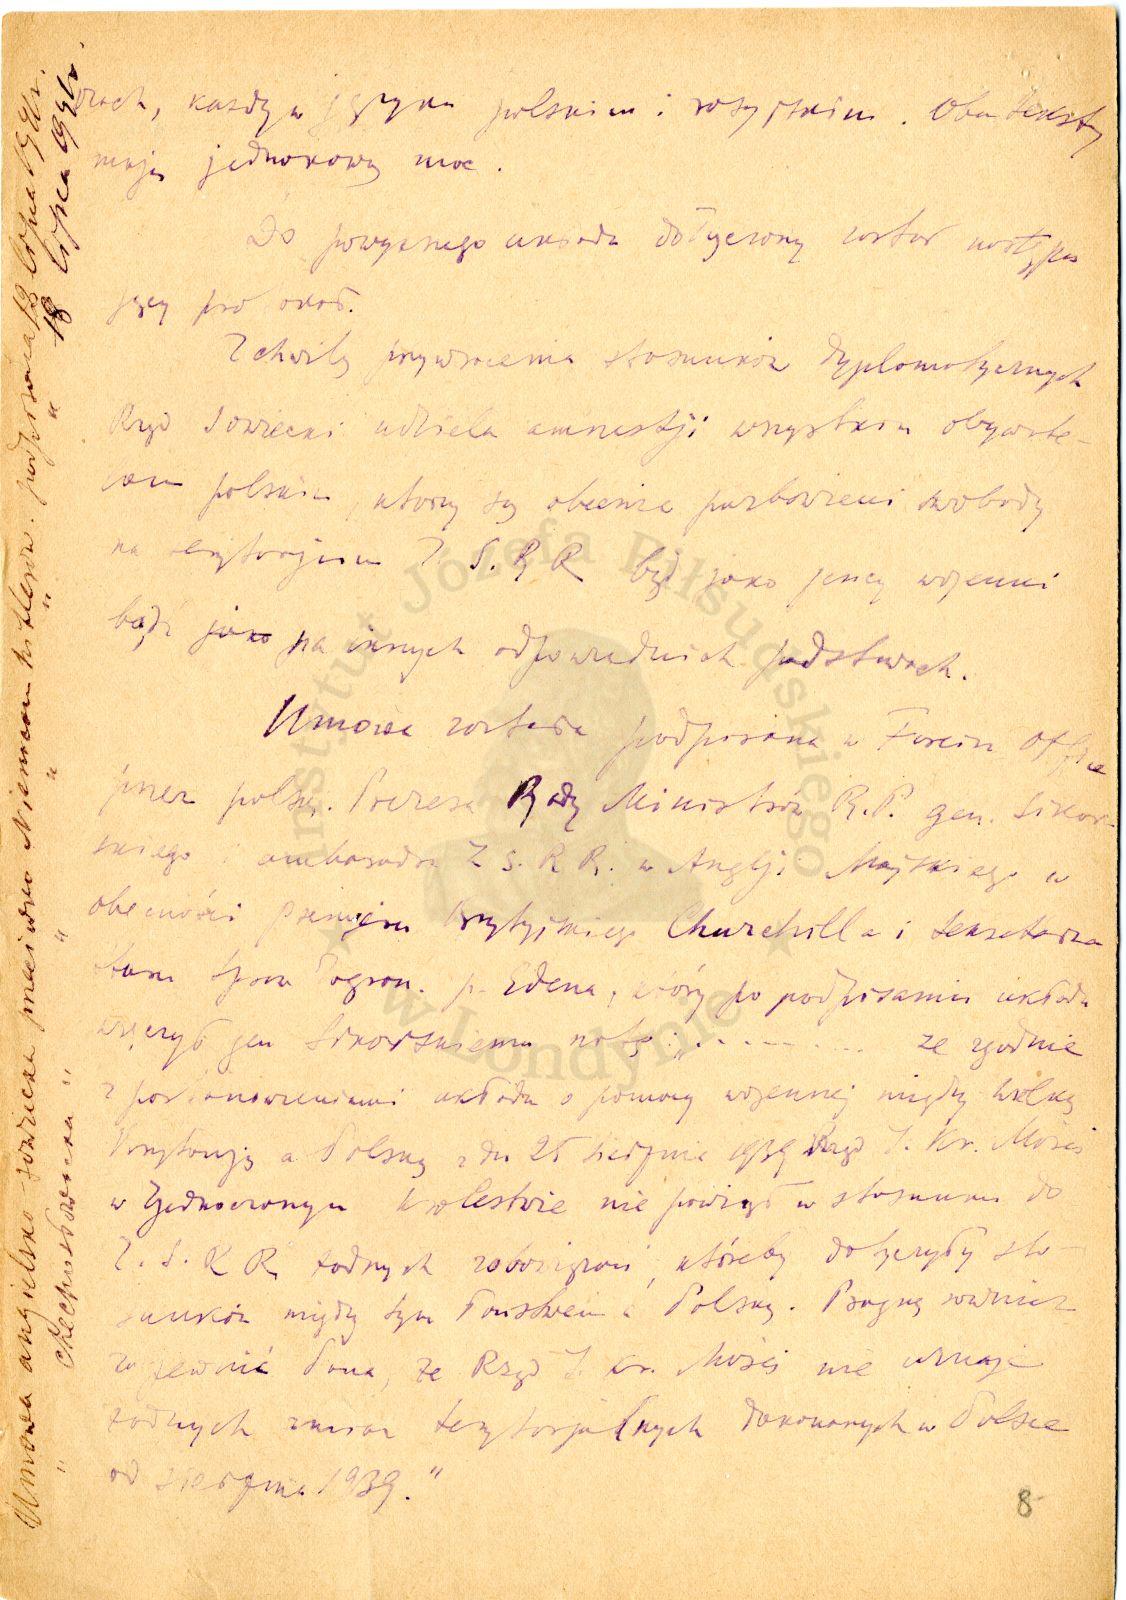 rzach, każdy w języku polskim i rosyjskim. Oba teksty
mają jednakową moc.
Do powyższego układu dołączony został następu
jący protokół.
Z chwilą przywrócenia stosunków dyplomatycznych
Rząd Sowiecki udziela amnestji wszystkim obywate-
lom polskim, którzy są obecnie pozbawieni swobody
na terytorjum Z. S. R R bądź jako jeńcy wojenni
bądź jako na innych odpowiednich podstawach.
Umowa została podpisana w Forein Office
przez polsk. Prezesa Rady Ministrów R.P. gen. Sikor
skiego i ambasadora Z S. R R. w Anglji Majskiego w
obecności premjera brytyjskiego Churchilla i sekretarza
stanu spraw Zagran. p. Edena, który po podpisaniu układu
wręczył gen Sikorskiemu notę: „........ że zgodnie
z postanowieniami układu o pomocy wojennej między Wielką
Brytanją a Polską z dn 25 sierpnia 1939 Rząd J. Kr. Mości
w Zjednoczonym Królestwie nie powziął w stosunku do
Z. S. R R. żadnych zobowiązań, któreby dotyczyły sto-
sunków między tym Państwem a Polską. Pragnę również
zapewnić Pana, że Rząd J. Kr. Mości nie uznaje
żadnych zmian terytorjalnych dokonanych w Polsce
od sierpnia 1939."
8
Umowa angielsko sowiecka przeciwko Niemcom hitlerow. podpisana 12 lipca 1941r.
" czechosłowacka " " " " " 18 lipca 1941r.
Instytut Józefa Piłsudskiego
w Londynie